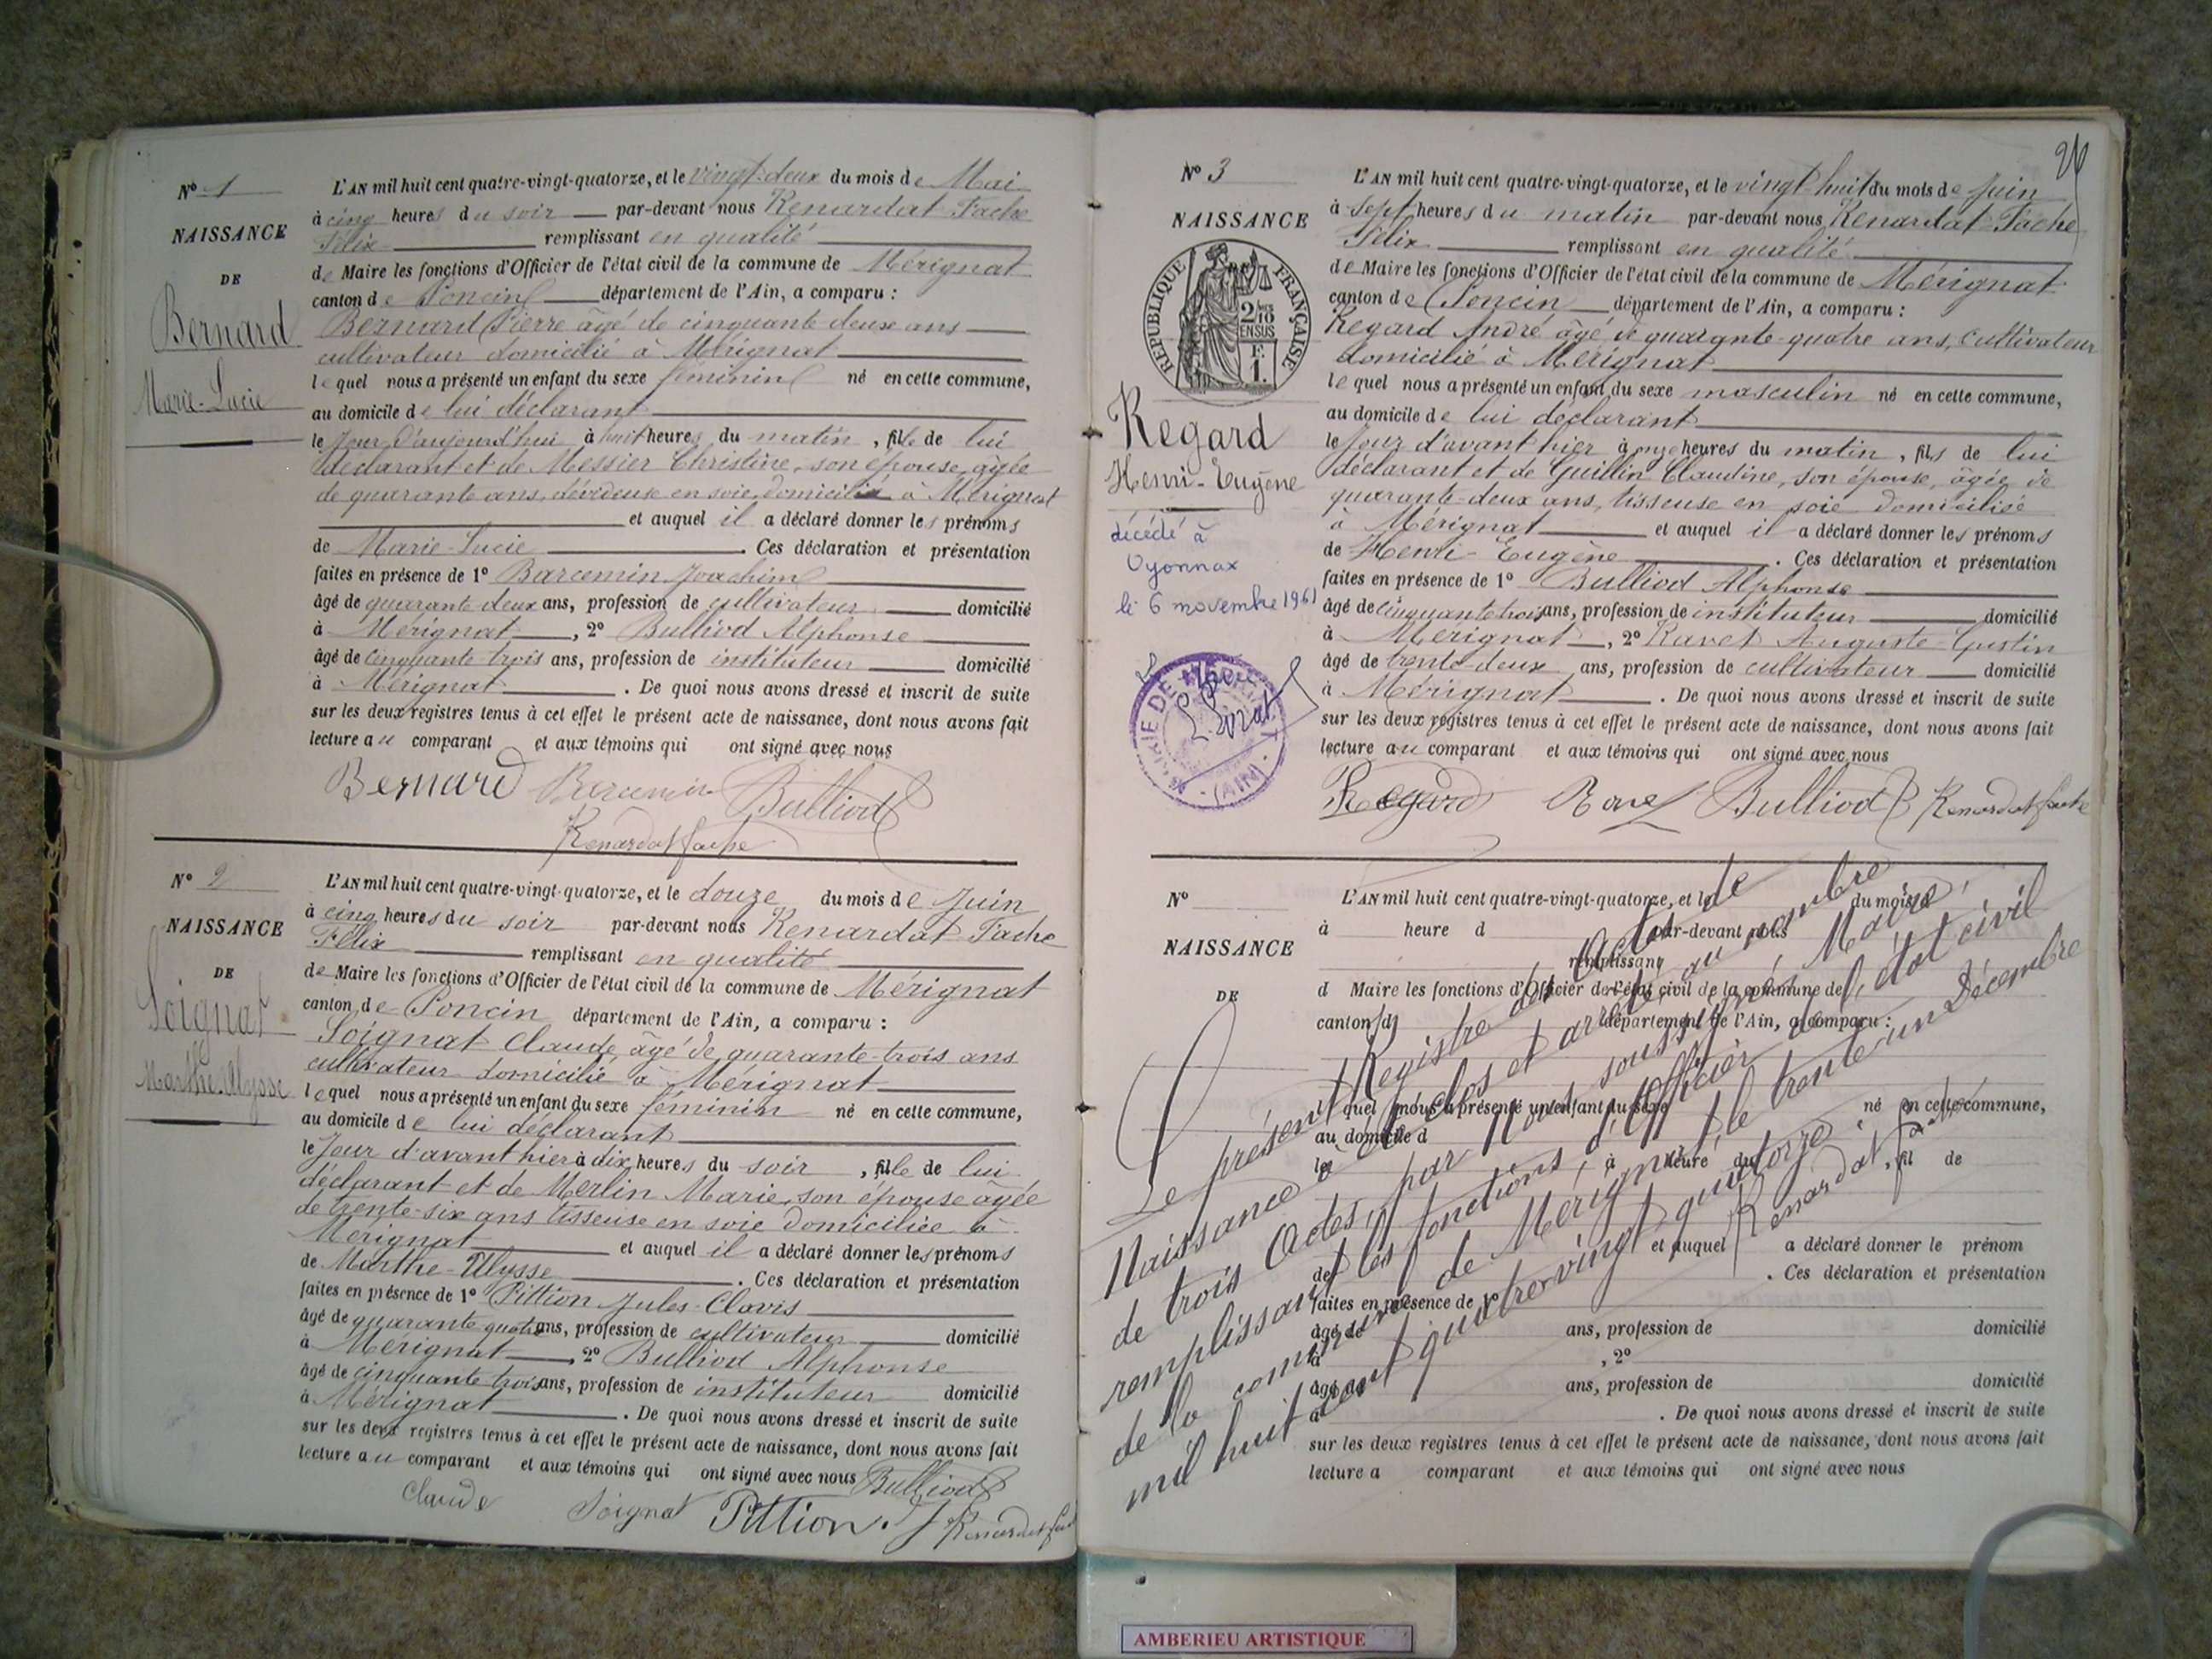 N° 1
NAISSANCE
DE
Bernard
Marie-Lucie
L'AN mil huit cent quatre-vingt-quatorze, et le vingt-deux du mois de Mai
à cinq heures du soir par-devant nous Renardat Fache
Félix remplissant en qualité
de Maire les fonctions d'Officier de l'état civil de la commune de Mérignat
canton de Poncin département de l'Ain, a comparu :
Bernard Pierre âgé de cinquante deux ans
cultivateur domicilié à Mérignat
lequel nous a présenté un enfant du sexe féminin né en cette commune,
au domicile de lui déclarant
le jour d'aujourd'hui à huit heures du matin, fille de lui
déclarant et de Messier Christine, son épouse, âgée
de quarante ans, dévideuse en soie, domiciliée à Mérignat
et auquel il a déclaré donner les prénoms
de Marie-Lucie. Ces déclaration et présentation
faites en présence de 1° Barcemin Joachim
âgé de quarante deux ans, profession de cultivateur domicilié
à Mérignat, 2° Bulliod Alphonse
âgé de cinquante trois ans, profession de instituteur domicilié
à Mérignat. De quoi nous avons dressé et inscrit de suite
sur les deux registres tenus à cet effet le présent acte de naissance, dont nous avons fait
lecture au comparant et aux témoins qui ont signé avec nous
Bernard Barcemin Bulliod
Renardat fache
N° 2
NAISSANCE
DE
Soignat
Marthe-Ulysse
L'AN mil huit cent quatre-vingt-quatorze, et le douze du mois de Juin
à cinq heures du soir par-devant nous Renardat Fache
Félix remplissant en qualité
de Maire les fonctions d'Officier de l'état civil de la commune de Mérignat
canton de Poncin département de l'Ain, a comparu :
Soignat Claude, âgé de quarante-trois ans
cultivateur domicilié à Mérignat
lequel nous a présenté un enfant du sexe féminin né en cette commune,
au domicile de lui déclarant
le jour d'avant hier à dix heures du soir, fille de lui
déclarant et de Merlin Marie, son épouse âgée
de trente-six ans tisseuse en soie domiciliée à
Mérignat et auquel il a déclaré donner les prénoms
de Marthe-Ulysse. Ces déclaration et présentation
faites en présence de 1° Pittion Jules-Clovis
âgé de quarante quatre ans, profession de cultivateur domicilié
à Mérignat, 2° Bulliod Alphonse
âgé de cinquante trois ans, profession de instituteur domicilié
à Mérignat. De quoi nous avons dressé et inscrit de suite
sur les deux registres tenus à cet effet le présent acte de naissance, dont nous avons fait
lecture au comparant et aux témoins qui ont signé avec nous Bulliod
Claude Soignat Pittion. J Renardat fache
26
N° 3
NAISSANCE
RÉPUBLIQUE FRANÇAISE
2/10 EN SUS
F. 1.
Regard
Henri-Eugène
décédé à
Oyonnax
le 6 novembre 1961
MAIRIE DE MERIGNAT (AIN)
L'AN mil huit cent quatre-vingt-quatorze, et le vingt-huit du mois de Juin
à Sept heures du matin par-devant nous Renardat-Fache
Félix remplissant en qualité
de Maire les fonctions d'Officier de l'état civil de la commune de Mérignat
canton de Poncin département de l'Ain, a comparu :
Regard André âgé de quarante-quatre ans, cultivateur
domicilié à Mérignat
lequel nous a présenté un enfant du sexe masculin né en cette commune,
au domicile de lui déclarant
le jour d'avant hier à onze heures du matin, fils de lui
déclarant et de Guillin Claudine, son épouse, âgée de
quarante-deux ans, tisseuse en soie domiciliée
à Mérignat et auquel il a déclaré donner les prénoms
de Henri-Eugène. Ces déclaration et présentation
faites en présence de 1° Bulliod Alphonse
âgé de cinquante trois ans, profession de instituteur domicilié
à Mérignat, 2° Ravet Auguste-Gustin
âgé de trente-deux ans, profession de cultivateur domicilié
à Mérignat. De quoi nous avons dressé et inscrit de suite
sur les deux registres tenus à cet effet le présent acte de naissance, dont nous avons fait
lecture au comparant et aux témoins qui ont signé avec nous
Regard Bulliod Renardat fache
N°
NAISSANCE
DE
L'AN mil huit cent quatre-vingt-quatorze, et le du mois d
à heure d par-devant nous
remplissant
d Maire les fonctions d'Officier de l'état civil de la commune de
canton d département de l'Ain, a comparu :
l quel nous a présenté un enfant du sexe né en cette commune,
au domicile d
le à heure du, fil de
et auquel a déclaré donner le prénom
de. Ces déclaration et présentation
faites en présence de 1°
âgé de ans, profession de domicilié
à, 2°
âgé de ans, profession de domicilié
à. De quoi nous avons dressé et inscrit de suite
sur les deux registres tenus à cet effet le présent acte de naissance, dont nous avons fait
lecture a comparant et aux témoins qui ont signé avec nous
Le présent Registre des Actes de
Naissance a été clos et arrêté au nombre
de trois Actes, par Nous soussigné, Maire,
remplissant les fonctions d'Officier de l'état civil
de la commune de Mérignat, le trente-un Décembre
mil huit cent quatre-vingt quatorze
Renardat fache
AMBERIEU ARTISTIQUE